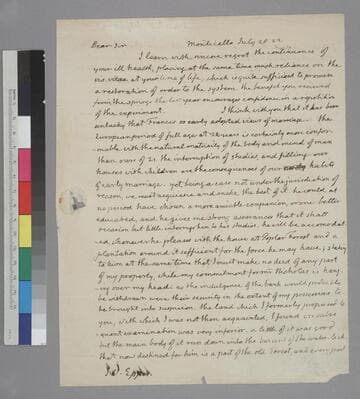 Dear Sir Monticello July 28. 22
I learn with sincere regret the continuance of
your ill health, placing at the same time much reliance on the
vis vitae at your time of life, which is quite sufficient to procure
a restoration of order to the system. the benefit you recieved
from the springs the last year encourages confidence in a repetition
of the experiment. I think with you that it has been
unlucky that Francis so early adopted views of marriage. the
European period of full age at 25. years is certainly more confor-
-mable with the natural maturity of the body and mind of man
than ours of 21. the interruption of studies, and filling our
houses with children are the consequences of our habits
of early marriage. yet being a case not under the jurisdiction of
reason, we must acquiesce and make the best of it. he could at
no period have chosen a more amiable companion, or one better
educated, and he gives me strong assurances that it shall
occasion but little interruption to his studies. he will be accomodat-
-ed, whenever he pleases with the house at Poplar Forest and a
plantation around it sufficient for the force he may have;
to him at the same time that I must make no deed of any part
of my property, while my commitment for mr Nicholas is hang-
-ing over my head: as the indulgence of the bank would probably
be withdrawn were their security in the extent of my possessions to
be brought into suspicion. the land which I formerly proposed to
you, with which I was not then acquainted, I found on subse-
quent examination was very inferior. a little of it was good
but the main body of it run down into the barrens of the
that now destined for him is a part of the old Forest, and every part
Jno. W. Eppes